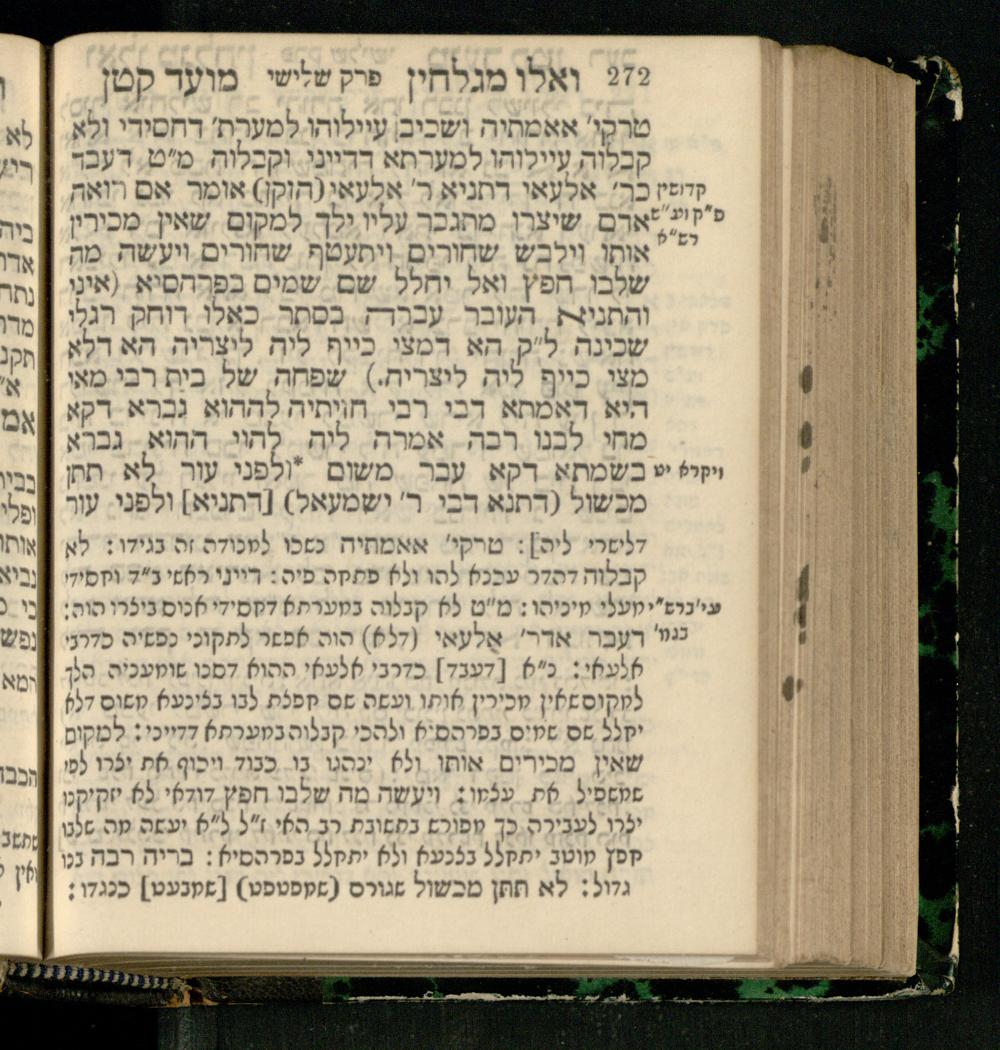 272 ואלו מגלחין פרק שלישי מועד קטן
טרקי׳ אאמתיה ושכיב עיילוהו למערת׳ דחסידי ולא
קבלוה עיילוהו למערתא דדייני וקבלוה מ״ט דעבד
כר׳ אלעאי דתניא ר׳ אלעאי (הזקן) אומר אם רואה
אדם שיצרו מתגבר עליו ילך למקום שאין מכירין
אותו וילבש שחורים ויתעטף שחורים ויעשה מה
שלבו חפץ ואל יחלל שם שמים בפרהסיא (איני
והתניא העובר עברה בסתר כאלו דוחק רגלי
שכינה ל״ק הא דמצי כייף ליה ליצריה הא דלא
מצי כייף ליה ליצריה.) שפחה של בית רבי מאי
היא דאמתא דבי רבי חזיתיה לההוא גברא דקא
מחי לבנו רבה אמרה ליה להוי ההוא גברא
בשמתא דקא עבר משום *ולפני עור לא תתן
מכשול (דתנא דבי ר׳ ישמעאל) [דתניא] ולפני עור
קדושין
פ״ק ועי״ש
רש״א
ויקרא יט
דלישרי ליה]: טרקי׳ אאמתיה נשכו למכודה זה בגידו: לא
קבלוה דהדר עכנא להו ולא פתחה פיה: דייני ראשי ב״ד וחסידי
מעלי מיניהו: מ״ט לא קבלוה במערתא דחסידי אנוס ביצרו הוה:
דעבר אדר׳ אלעאי (דלא) הוה אפשר לתקוני נפשיה כדרבי
אלעאי: נ״א [דעבד] כדרבי אלעאי ההוא דסנו שומעניה הלך
למקום שאין מכירין אותו ועשה שם חפצת לבו בצינעא משום דלא
יחלל שם שמים בפרהסיא ולהכי קבלוה במערתא דדייני: למקום
שאין מכירים אותו ולא ינהגו בו כבוד ויכוף את יצרו לפי
שמשפיל את עצמו: ויעשה מה שלבו חפץ דודאי לא יזקיקנו
יצרו לעבירה כך מפורש בתשובת רב האי ז״ל ל״א יעשה מה שלבו
חפץ מוטב יתקלל בצנעא ולא יתקלל בפרהסיא: בריה רבה בנו
גדול: לא תתן מכשול שגורם (שמפטפט) [שמבעט] כנגדו:
עי׳ ברש״י
בגמ׳